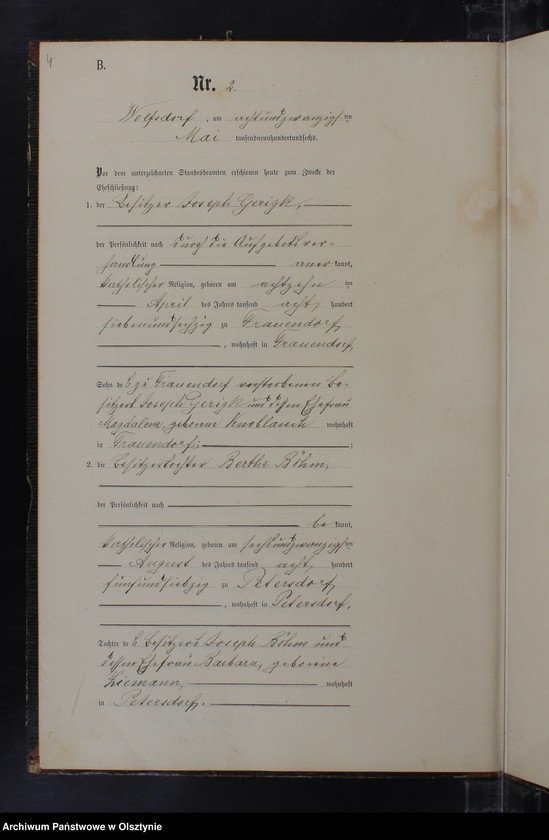 4
B.
Nr. 2.
Wolfsdorf, am achtundzwanzigsten
Mai tausendneunhundertundsechs.
Vor dem unterzeichneten Standesbeamten erschienen heute zum Zwecke der
Eheschließung:
1. der Besitzer Joseph Gerigk,
der Persönlichkeit nach durch die Aufgebotsver-
handlung anerkannt,
katholischer Religion, geboren am achtzehnten
April des Jahres tausend acht hundert
siebenundsechzig zu Frauendorf,
, wohnhaft in Frauendorf,
Sohn des zu Frauendorf verstorbenen Be-
sitzers Joseph Gerigk und dessen Ehefrau
Magdalena, geborene Knoblauch wohnhaft
in Frauendorf;
2. die Besitzertochter Bertha Böhm,
der Persönlichkeit nach
bekannt,
katholischer Religion, geboren am sechsundzwanzigsten
August des Jahres tausend acht hundert
fünfundsiebzig zu Petersdorf
, wohnhaft in Petersdorf,
Tochter des Besitzers Joseph Böhm und
dessen Ehefrau Barbara, geborene
Ziemann, wohnhaft
in Petersdorf.
Archiwum Państwowe w Olsztynie